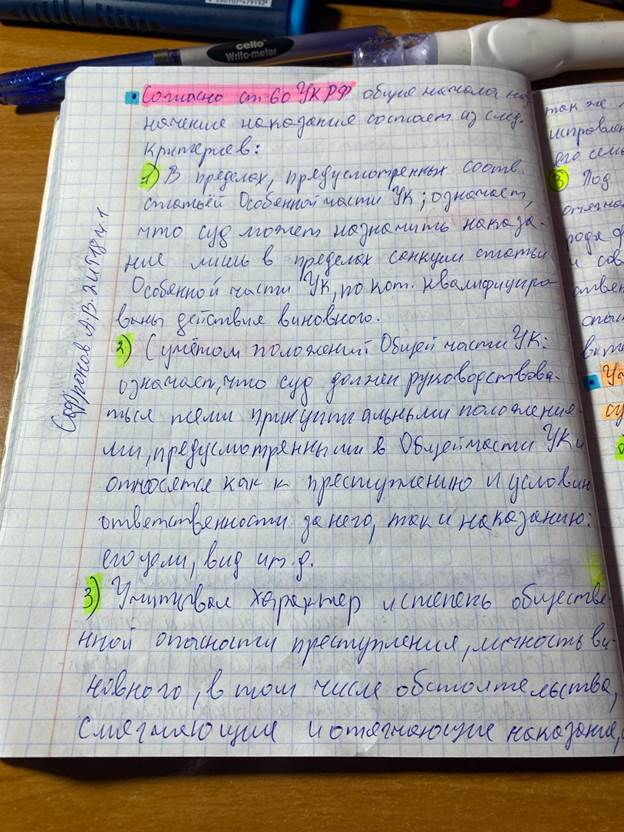 cello
Write-meter
Согласно ст 60 УК РФ общие начала наз
начение наказания состоят из след.
критериев:
1) В пределах, предусмотренных соотв.
статьёй Особенной части УК; означает,
что суд может назначить наказа-
ние лишь в пределах санкции статьи
Особенной части УК, по кот. квалифициро
ваны действия виновного.
2) С учётом положений Общей части УК:
означает, что суд должен руководствова-
ться теми принципиальными положения-
ми, предусмотренными в Общей части УК и
относятся как к преступлению и условия
ответственности за него, так и наказанию:
его цели, вид и т.д.
3) Учитывая характер и степень обществе
нной опасности преступления, личность ви-
новного, в том числе обстоятельства,
смягчающие и отягчающие наказание,
Сафронов А.В.
так же
исправлен
его семь
3) Под
отягча
рода
и сов